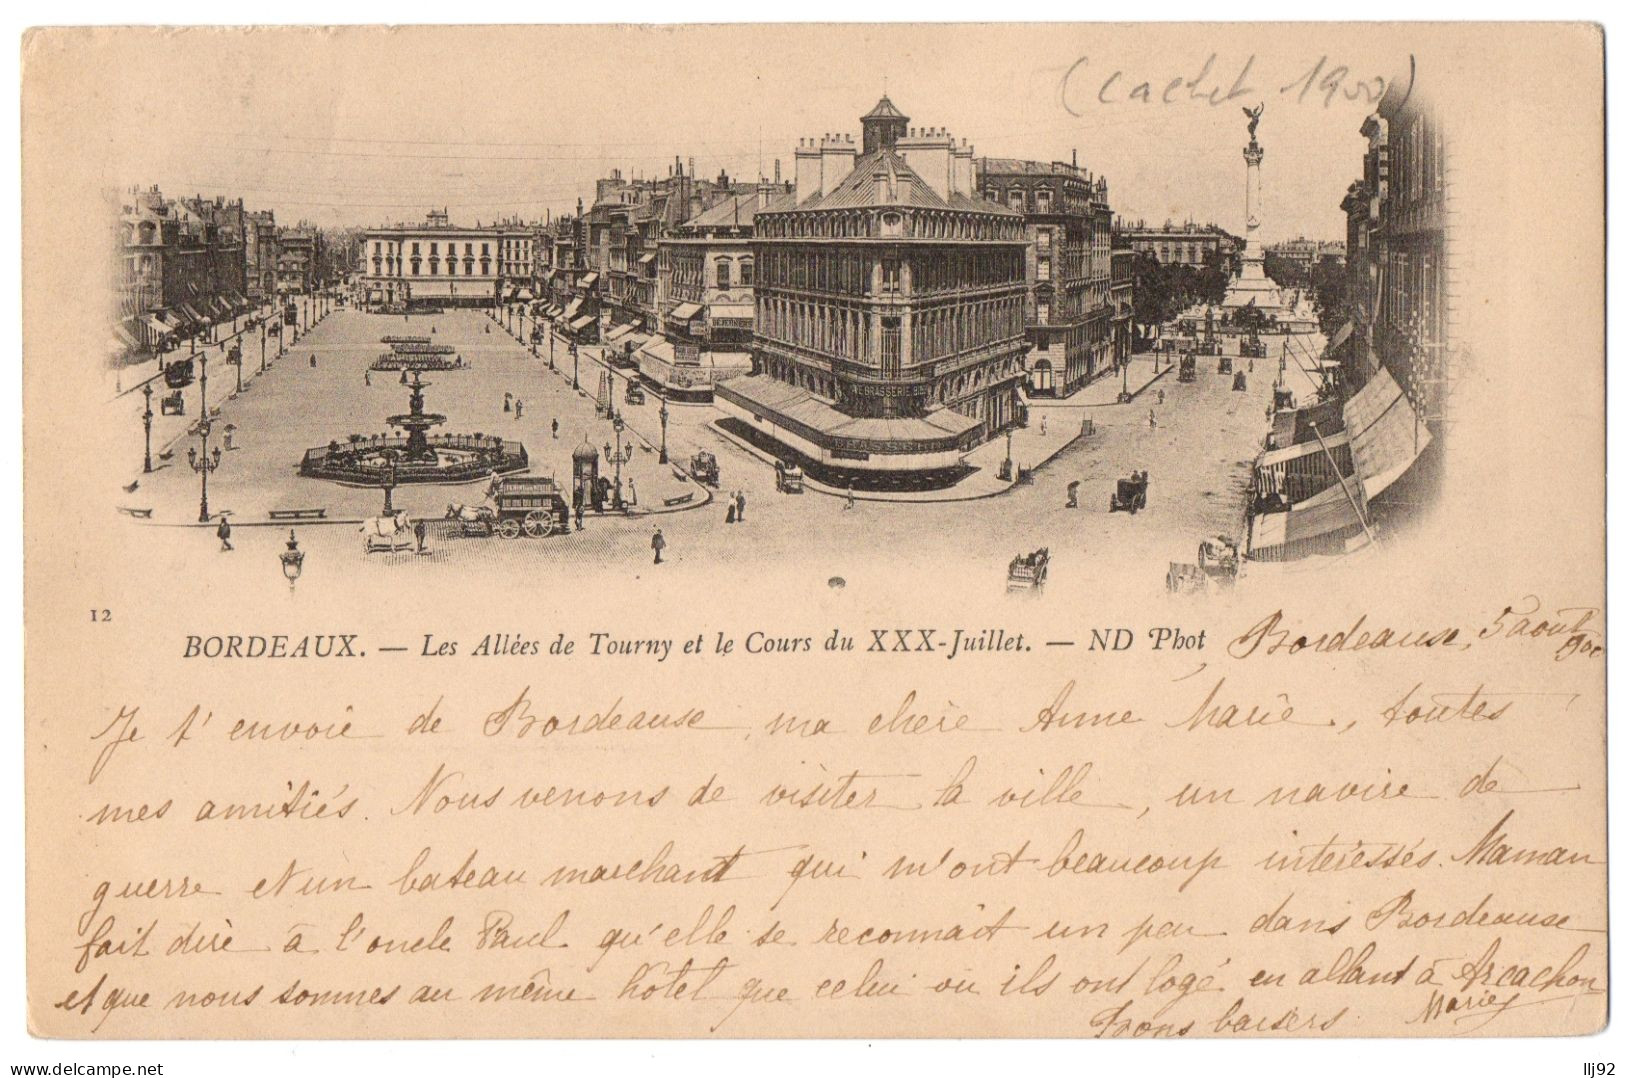 (Cachet 1900)
BRASSERIE
12
BORDEAUX. — Les Allées de Tourny et le Cours du XXX-Juillet. — ND Phot
Bordeaux, 5 août
900
Je t'envoie de Bordeaux, ma chère Anne Marie, toutes
mes amitiés. Nous venons de visiter la ville, un navire de
guerre et un bateau marchand qui m'ont beaucoup intéressés. Maman
fait dire à l'oncle Paul qu'elle se reconnait un peu dans Bordeaux
et que nous sommes au même hôtel que celui où ils ont logé en allant à Arcachon
Bons baisers Marie
delcampe.net
llj92